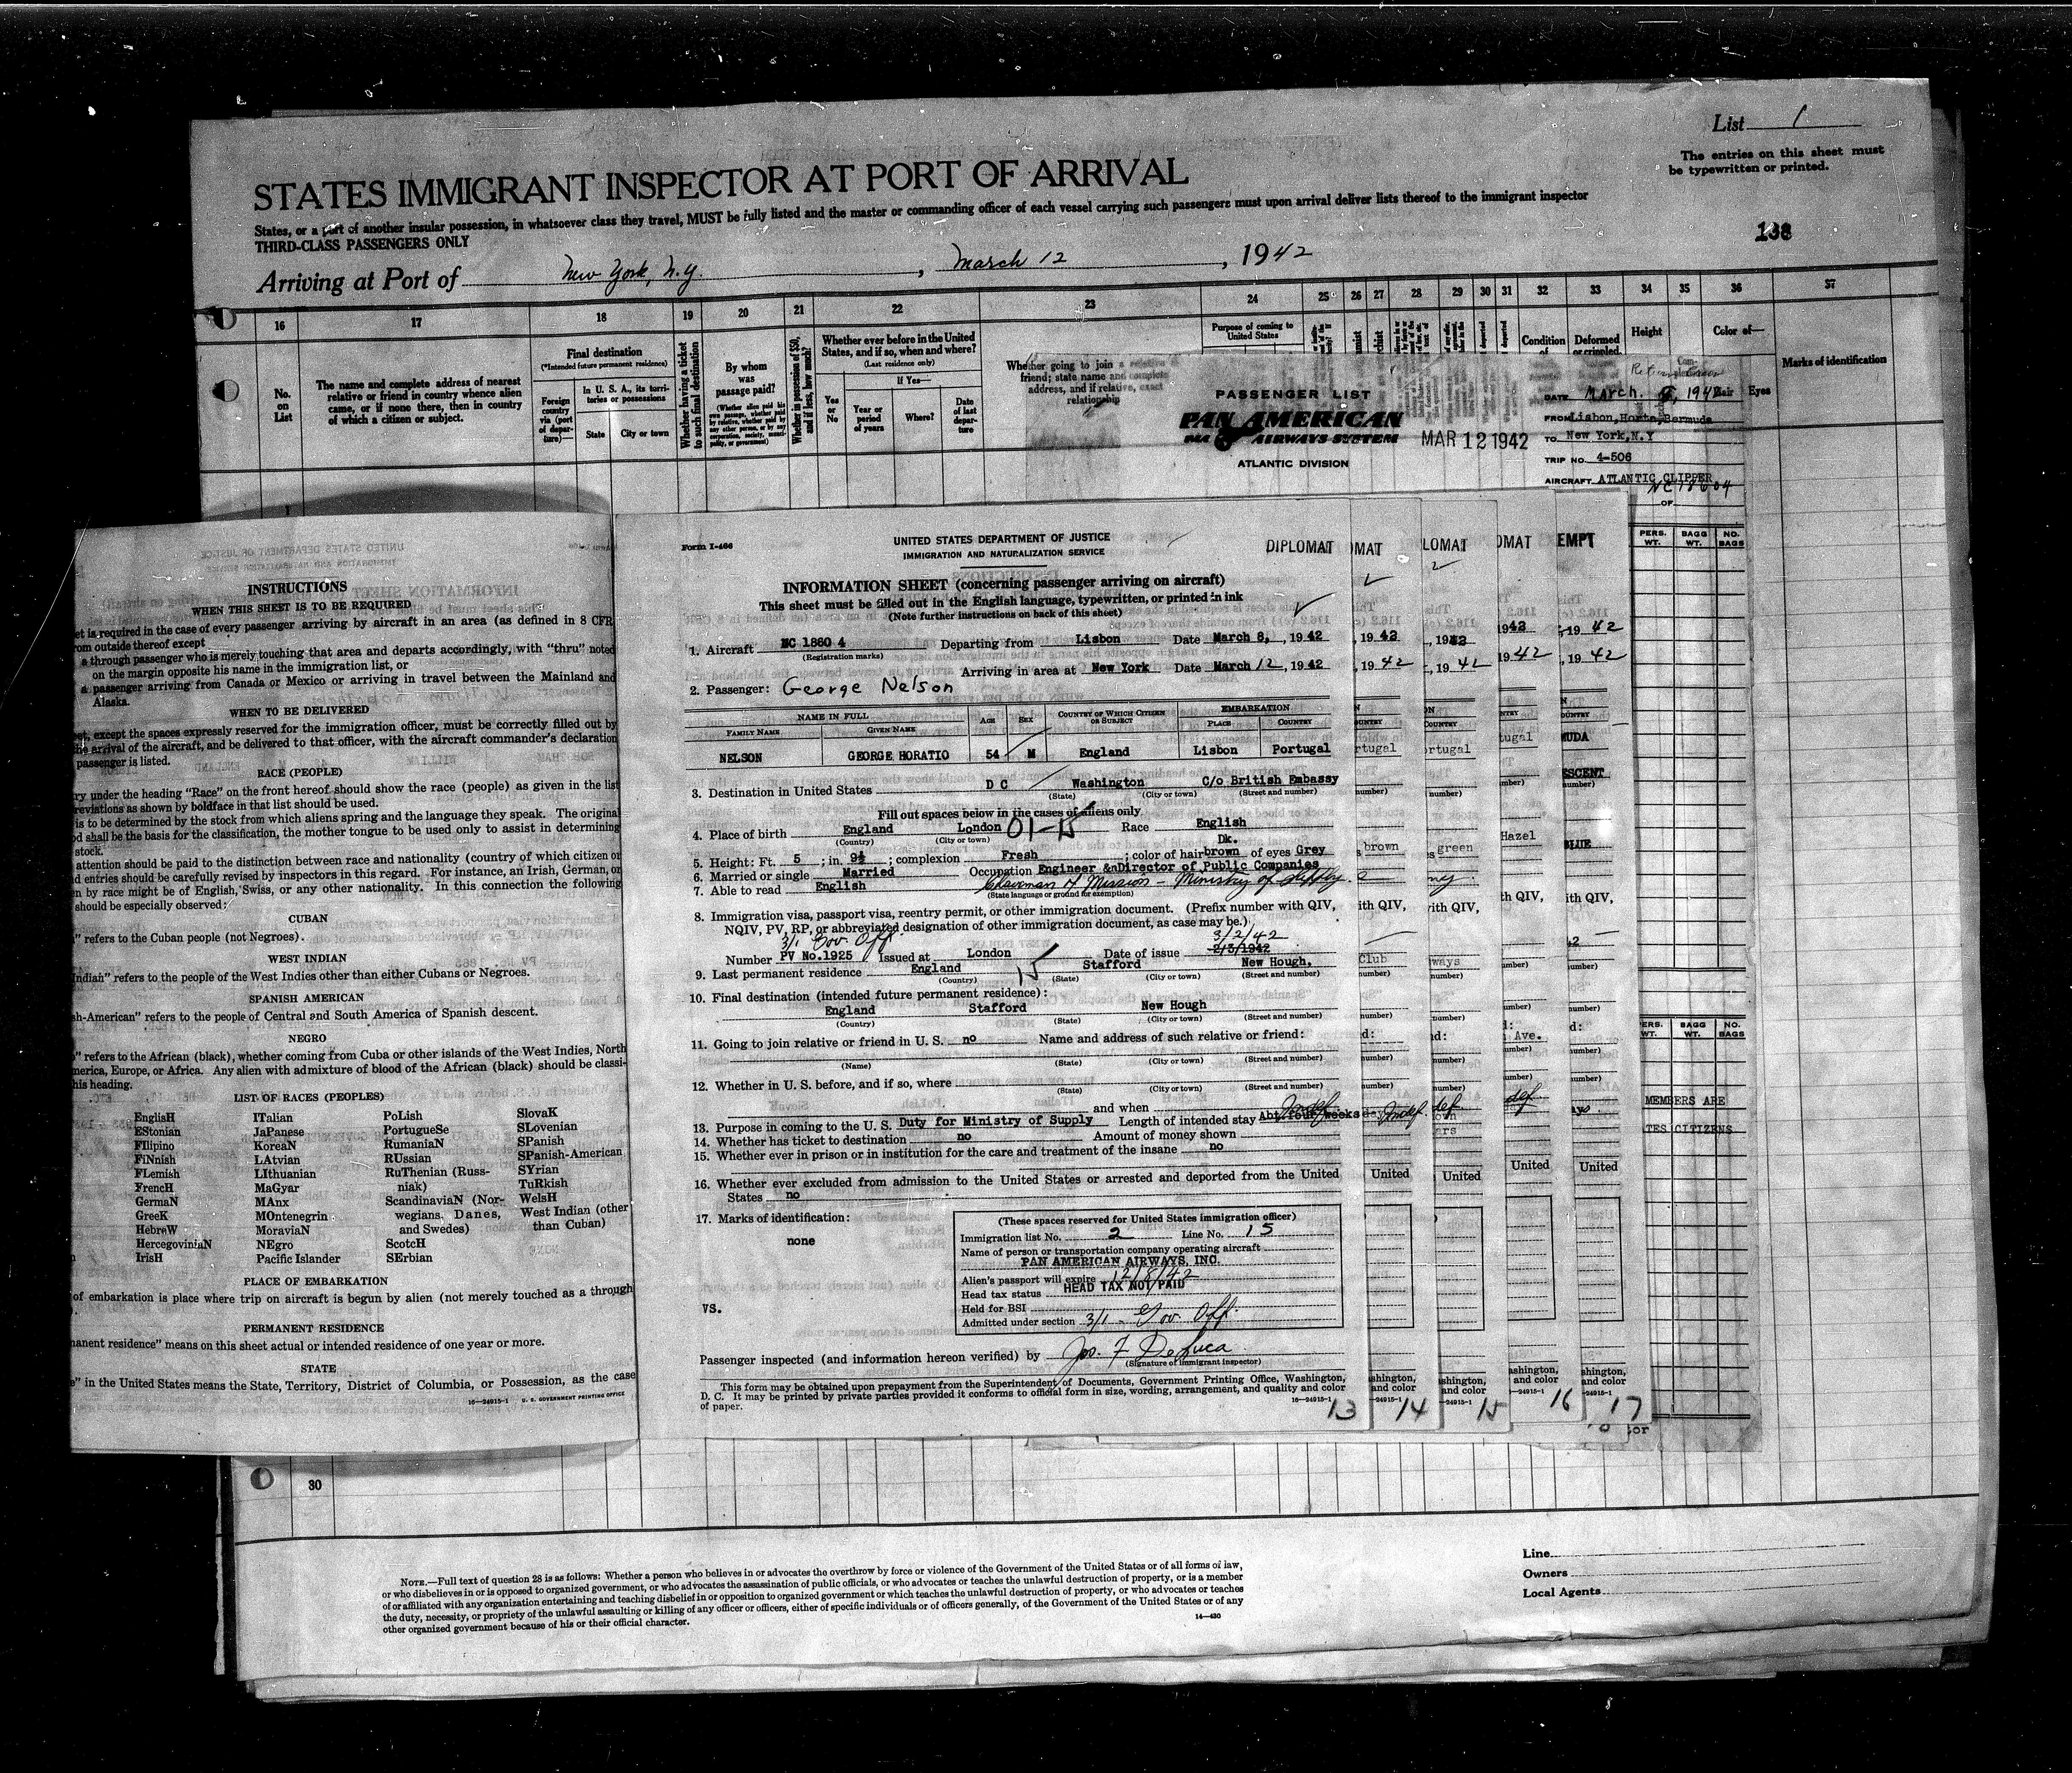 List 1
The entries on this sheet must
be typewritten or printed.
STATES IMMIGRANT INSPECTOR AT PORT OF ARRIVAL
States, or a port of another insular possession, in whatsoever class they travel, MUST be fully listed and the master or commanding officer of each vessel carrying such passengers must upon arrival deliver lists thereof to the immigrant inspector
THIRD-CLASS PASSENGERS ONLY
138
Arriving at Port of New York, N.Y., March 12, 1942
16 17 18 19 20 21 22 23 24 25 26 27 28 29 30 31 32 33 34 35 36 37
No.
on
List
The name and complete address of nearest
relative or friend in country whence alien
came, or if none there, then in country
of which a citizen or subject.
Final destination
(*Intended future permanent residence)
Foreign
country
via (port
of depar-
ture)—
In U. S. A., its terri-
tories or possessions
State City or town
Whether having a ticket
to such final destination
By whom
was
passage paid?
(Whether alien paid his
own passage, whether paid
by relative, whether paid by
any other person, or by any
corporation, society, munici-
pality, or government)
Whether in possession of $50,
and if less, how much?
Whether ever before in the United
States, and if so, when and where?
(Last residence only)
If Yes—
Yes
or
No
Year or
period
of years
Where?
Date
of last
depar-
ture
Whether going to join a relative
friend; state name and complete
address, and if relative, exact
relationship
Purpose of coming to
United States
Condition
of
Deformed
or crippled.
Height
Color of—
Hair Eyes
Marks of identification
PASSENGER LIST
PAN AMERICAN
AIRWAYS SYSTEM
ATLANTIC DIVISION
MAR 12 1942
DATE March 1942
FROM Lisbon,Horta,Bermuda
TO New York,N.Y
TRIP NO. 4-506
AIRCRAFT ATLANTIC CLIPPER
NC 18604
OF
PERS.
WT.
BAGG
WT.
NO.
BAGS
PERS.
WT.
BAGG
WT.
NO.
BAGS
MEMBERS ARE
TES CITIZENS
INSTRUCTIONS
WHEN THIS SHEET IS TO BE REQUIRED
et is required in the case of every passenger arriving by aircraft in an area (as defined in 8 CFR
rom outside thereof except
a through passenger who is merely touching that area and departs accordingly, with "thru" noted
on the margin opposite his name in the immigration list, or
a passenger arriving from Canada or Mexico or arriving in travel between the Mainland and
Alaska.
WHEN TO BE DELIVERED
eet, except the spaces expressly reserved for the immigration officer, must be correctly filled out by
he arrival of the aircraft, and be delivered to that officer, with the aircraft commander's declaration
passenger is listed.
RACE (PEOPLE)
ry under the heading "Race" on the front hereof should show the race (people) as given in the list
reviations as shown by boldface in that list should be used.
is to be determined by the stock from which aliens spring and the language they speak. The original
od shall be the basis for the classification, the mother tongue to be used only to assist in determining
stock.
attention should be paid to the distinction between race and nationality (country of which citizen or
d entries should be carefully revised by inspectors in this regard. For instance, an Irish, German, or
n by race might be of English, Swiss, or any other nationality. In this connection the following
should be especially observed:
CUBAN
" refers to the Cuban people (not Negroes).
WEST INDIAN
Indian" refers to the people of the West Indies other than either Cubans or Negroes.
SPANISH AMERICAN
sh-American" refers to the people of Central and South America of Spanish descent.
NEGRO
" refers to the African (black), whether coming from Cuba or other islands of the West Indies, North
merica, Europe, or Africa. Any alien with admixture of blood of the African (black) should be classi-
his heading.
LIST OF RACES (PEOPLES)
EnglisH ITalian PoLish SlovaK
EStonian JaPanese PortugueSe SLovenian
FIlipino KoreaN RumaniaN SPanish
FiNnish LAtvian RUssian SPanish-American
FLemish LIthuanian RuThenian (Russ- SYrian
FrencH MaGyar niak) TuRkish
GermaN MAnx ScandinaviaN (Nor- WelsH
GreeK MOntenegrin wegians, Danes, West Indian (other
HebreW MoraviaN and Swedes) than Cuban)
HercegoviniaN NEgro ScotcH
IrisH Pacific Islander SErbian
PLACE OF EMBARKATION
of embarkation is place where trip on aircraft is begun by alien (not merely touched as a through
PERMANENT RESIDENCE
manent residence" means on this sheet actual or intended residence of one year or more.
STATE
e" in the United States means the State, Territory, District of Columbia, or Possession, as the case
16—24915-1 U. S. GOVERNMENT PRINTING OFFICE
Form I-466
UNITED STATES DEPARTMENT OF JUSTICE
IMMIGRATION AND NATURALIZATION SERVICE
DIPLOMAT
INFORMATION SHEET (concerning passenger arriving on aircraft)
This sheet must be filled out in the English language, typewritten, or printed in ink
(Note further instructions on back of this sheet)
1. Aircraft NC 1860 4 Departing from Lisbon Date March 8, 1942
(Registration marks)
Arriving in area at New York Date March 12, 1942
2. Passenger: George Nelson
NAME IN FULL
FAMILY NAME GIVEN NAME AGE SEX COUNTRY OF WHICH CITIZEN OR SUBJECT EMBARKATION PLACE COUNTRY
NELSON GEORGE HORATIO 54 M England Lisbon Portugal
3. Destination in United States D C Washington C/o British Embassy
(State) (City or town) (Street and number)
Fill out spaces below in the cases of aliens only
4. Place of birth England London Race English
(Country) (City or town)
5. Height: Ft. 5 ; in. 9½ ; complexion Fresh ; color of hair Dk. brown of eyes Grey
6. Married or single Married Occupation Engineer &nDirector of Public Companies
7. Able to read English Chairman of Mission - Ministry of Supply
(State language or ground for exemption)
8. Immigration visa, passport visa, reentry permit, or other immigration document. (Prefix number with QIV,
NQIV, PV, RP, or abbreviated designation of other immigration document, as case may be.)
3/1 Gov Off. 3/2/42
Number PV No.1925 Issued at London Date of issue 2/3/1942
9. Last permanent residence England Stafford New Hough.
(Country) (State) (City or town) (Street and number)
10. Final destination (intended future permanent residence):
England Stafford New Hough
(Country) (State) (City or town) (Street and number)
11. Going to join relative or friend in U. S. no Name and address of such relative or friend:
(Name) (State) (City or town) (Street and number)
12. Whether in U. S. before, and if so, where
(State) (City or town) (Street and number)
and when
13. Purpose in coming to the U. S. Duty for Ministry of Supply Length of intended stay Abt four weeks Indef.
14. Whether has ticket to destination no Amount of money shown
15. Whether ever in prison or in institution for the care and treatment of the insane no
16. Whether ever excluded from admission to the United States or arrested and deported from the United
States no
17. Marks of identification:
none
vs.
(These spaces reserved for United States immigration officer)
Immigration list No. 2 Line No. 15
Name of person or transportation company operating aircraft
PAN AMERICAN AIRWAYS, INC.
Alien's passport will expire 12/8/42
Head tax status HEAD TAX NOT PAID
Held for BSI
Admitted under section 3/1 - Gov Off.
Passenger inspected (and information hereon verified) by Jos. F DeLuca
(Signature of immigrant inspector)
This form may be obtained upon prepayment from the Superintendent of Documents, Government Printing Office, Washington,
D. C. It may be printed by private parties provided it conforms to official form in size, wording, arrangement, and quality and color
of paper.
16—24915-1
13 14 15 16 17
30
NOTE.—Full text of question 28 is as follows: Whether a person who believes in or advocates the overthrow by force or violence of the Government of the United States or of all forms of law,
or who disbelieves in or is opposed to organized government, or who advocates the assassination of public officials, or who advocates or teaches the unlawful destruction of property, or is a member
of or affiliated with any organization entertaining and teaching disbelief in or opposition to organized government or which teaches the unlawful destruction of property, or who advocates or teaches
the duty, necessity, or propriety of the unlawful assaulting or killing of any officer or officers, either of specific individuals or of officers generally, of the Government of the United States or of any
other organized government because of his or their official character.
14—430
Line
Owners
Local Agents